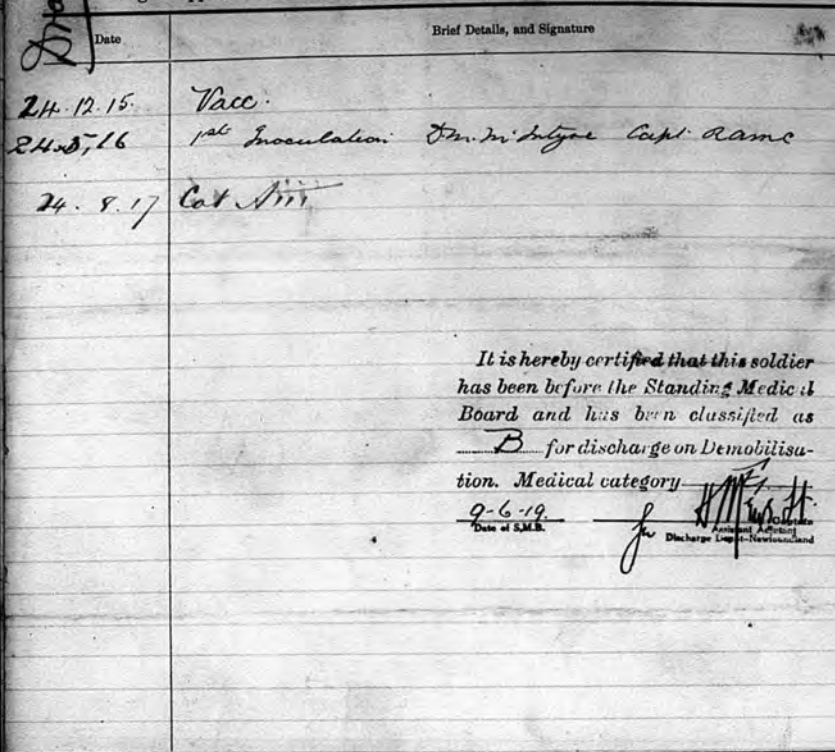 Date
Brief Details, and Signature
24.12.15. Vacc.
24.5.16 1st Inoculation D.M. McIntyre Capt RAMC
24.8.17 Cat Aiii
It is hereby certified that this soldier
has been before the Standing Medical
Board and has been classified as
B for discharge on Demobilisa-
tion. Medical category
9-6-19. for
Date of S.M.B.
Captain
Assistant Adjutant
Discharge Depot-Newfoundland